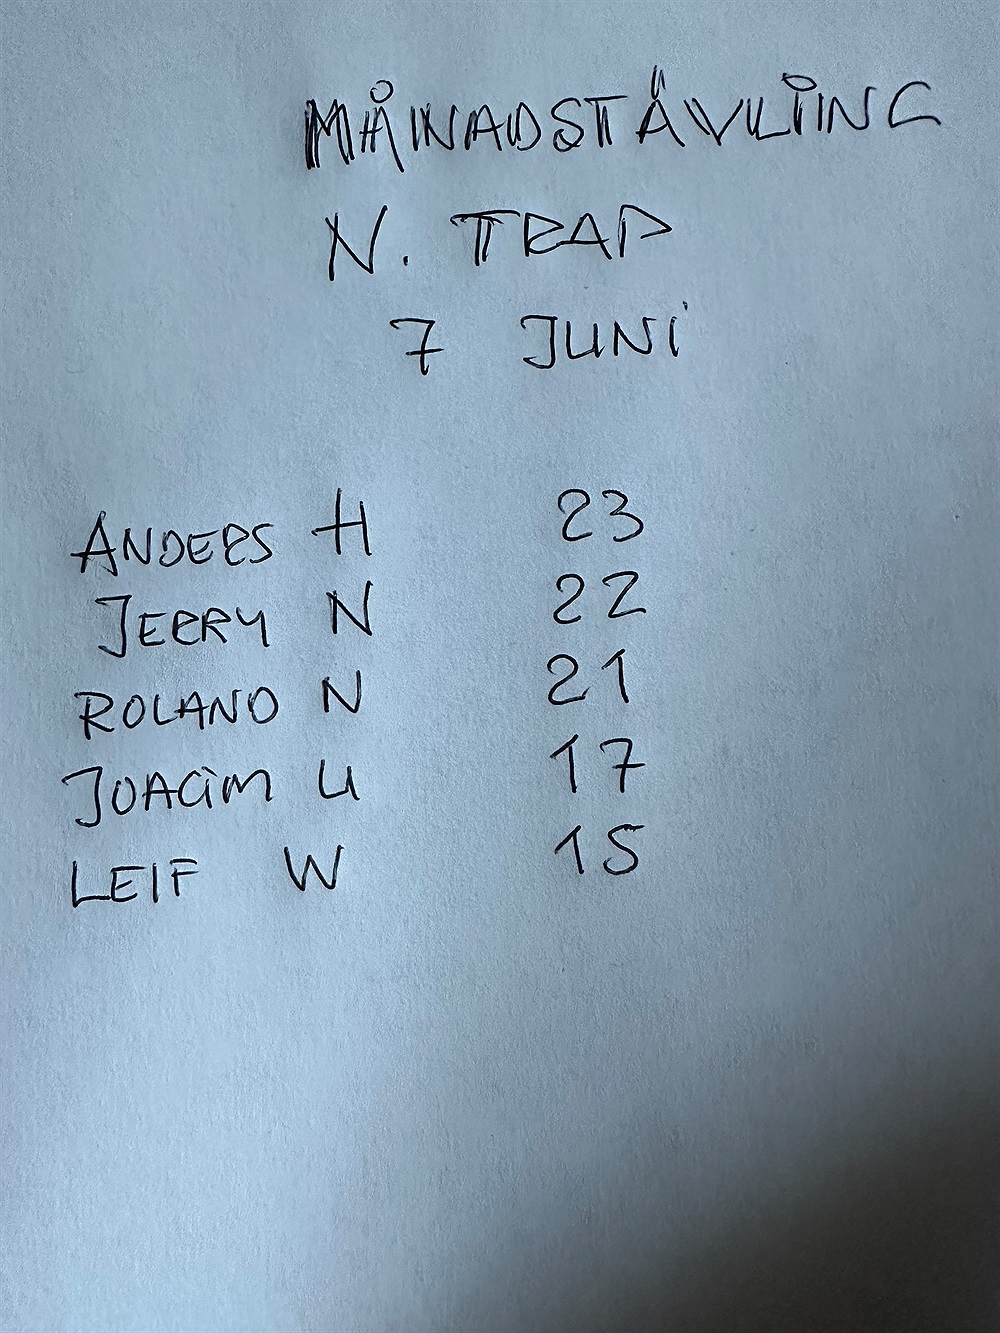 MÅNADSTÄVLING
N. TRAP
7 JUNI
ANDERS H 23
JERRY N 22
ROLAND N 21
JOACIM U 17
LEIF W 15